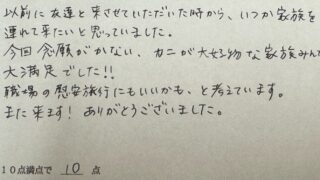 以前に友達と来させていただいた時から、いつか家族を
連れて来たいと思っていました。
今回念願がかない、カニが大好物な家族みんな
大満足でした!!
職場の慰安旅行にもいいかも、と考えています。
また来ます! ありがとうございました。
10点満点で 10 点